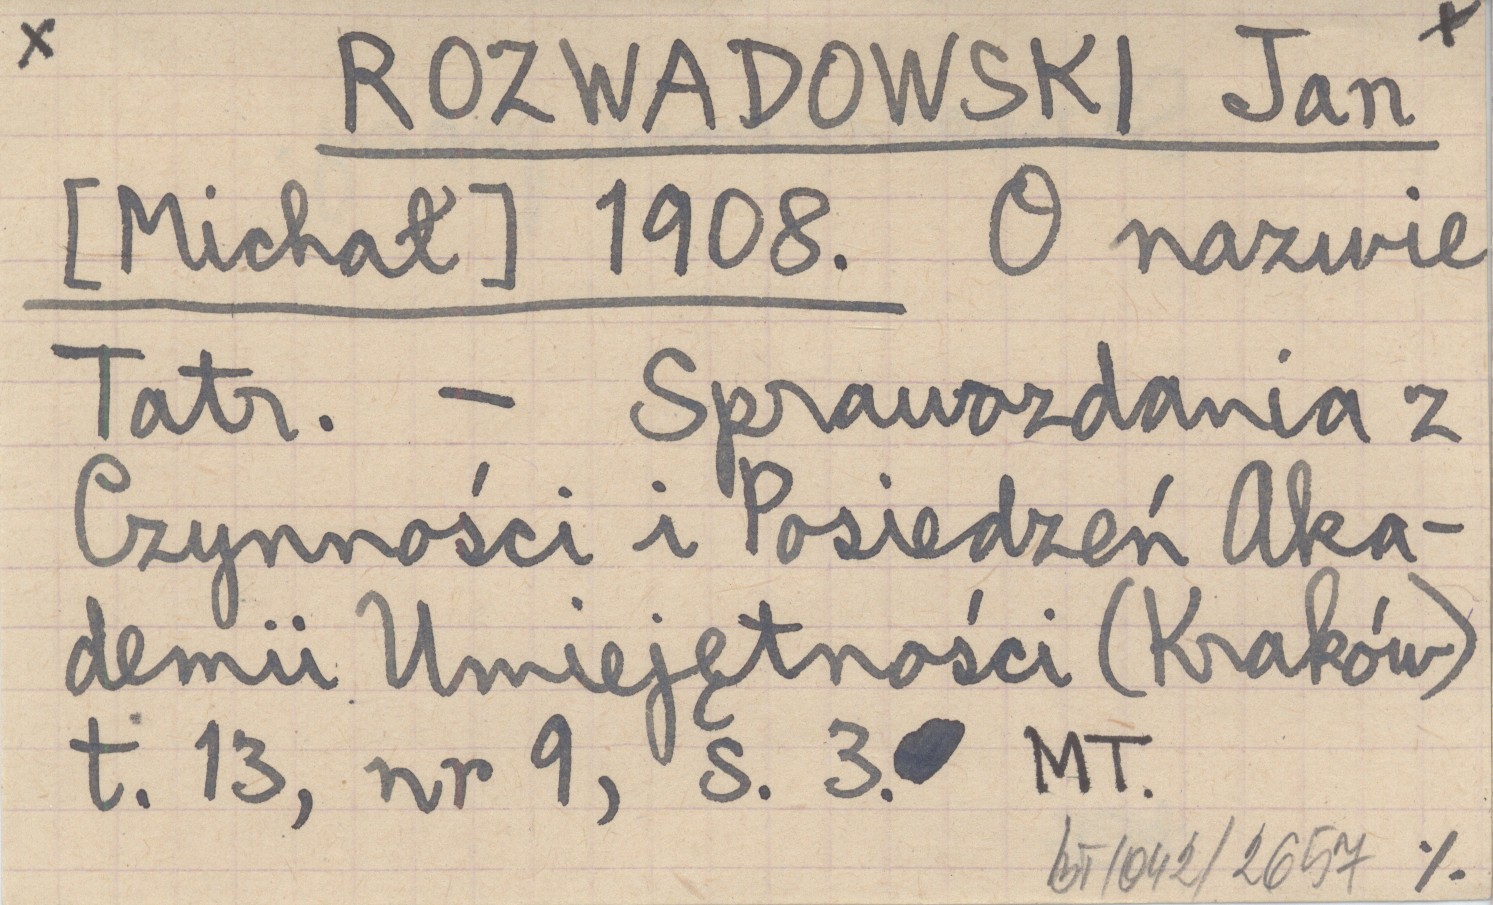 x ROZWADOWSKI Jan x
[Michał] 1908. O nazwie
Tatr. – Sprawozdania z
Czynności i Posiedzeń Aka-
demii Umiejętności (Kraków)
t. 13, nr 9, s. 3. MT.
BT/042/2657 ./.